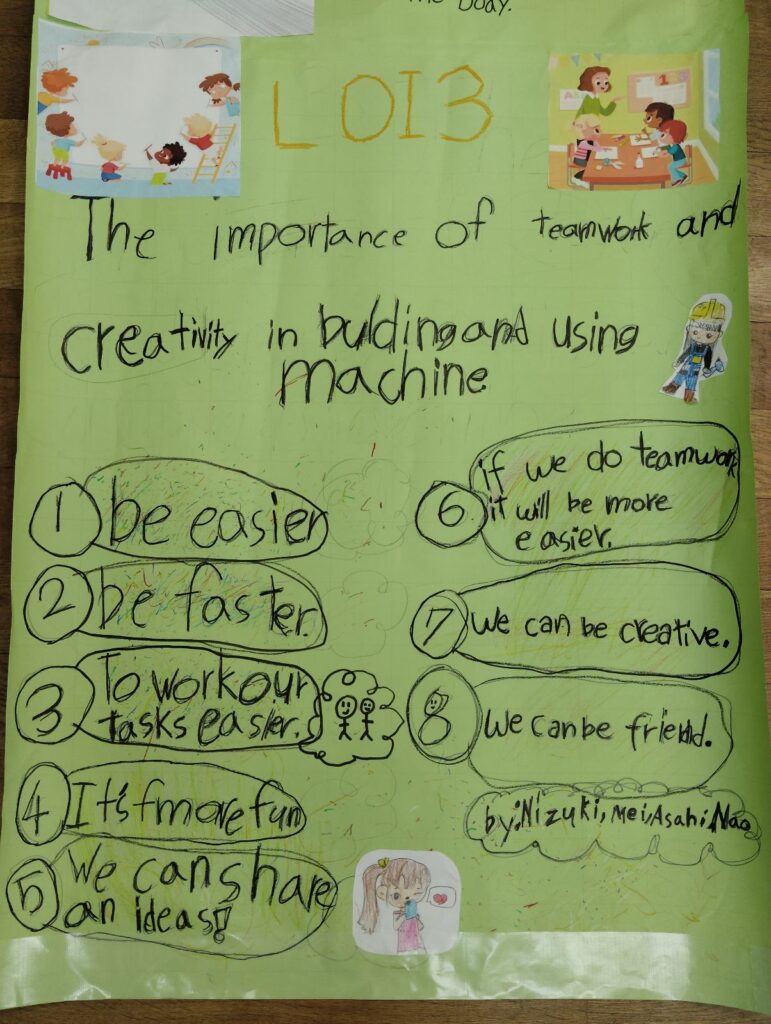 The Body.
LOI3
The importance of teamwork and
creativity in bulding and using
machine
1 be easier
2 be faster.
3 To work our
tasks easier.
4 It's more fun
5 We can share
an ideas!
6 if we do teamwork
it will be more
easier.
7 we can be creative.
8 we can be friend.
by: Nizuki, Mei, Asahi, Nao